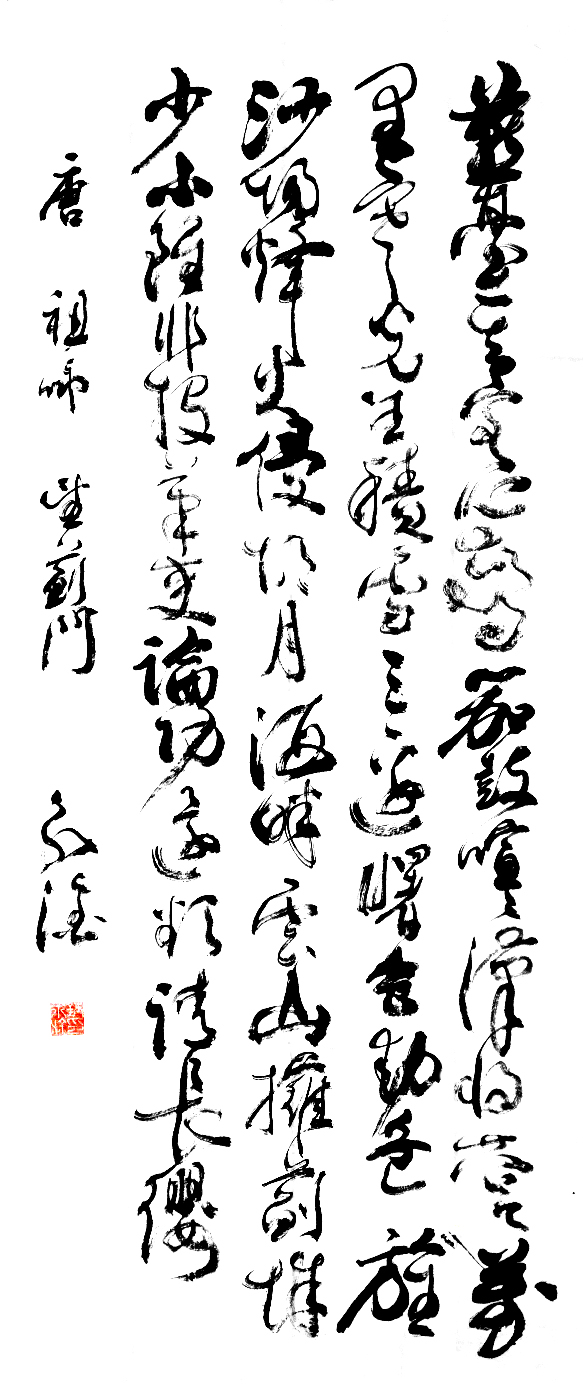 燕臺一去客心驚笳鼓喧喧漢將營萬
里寒光生積雪三邊曙色動危旌
沙場烽火侵胡月海畔雲山擁薊城
少小雖非投筆吏論功還欲請長纓
唐 祖咏 望薊門